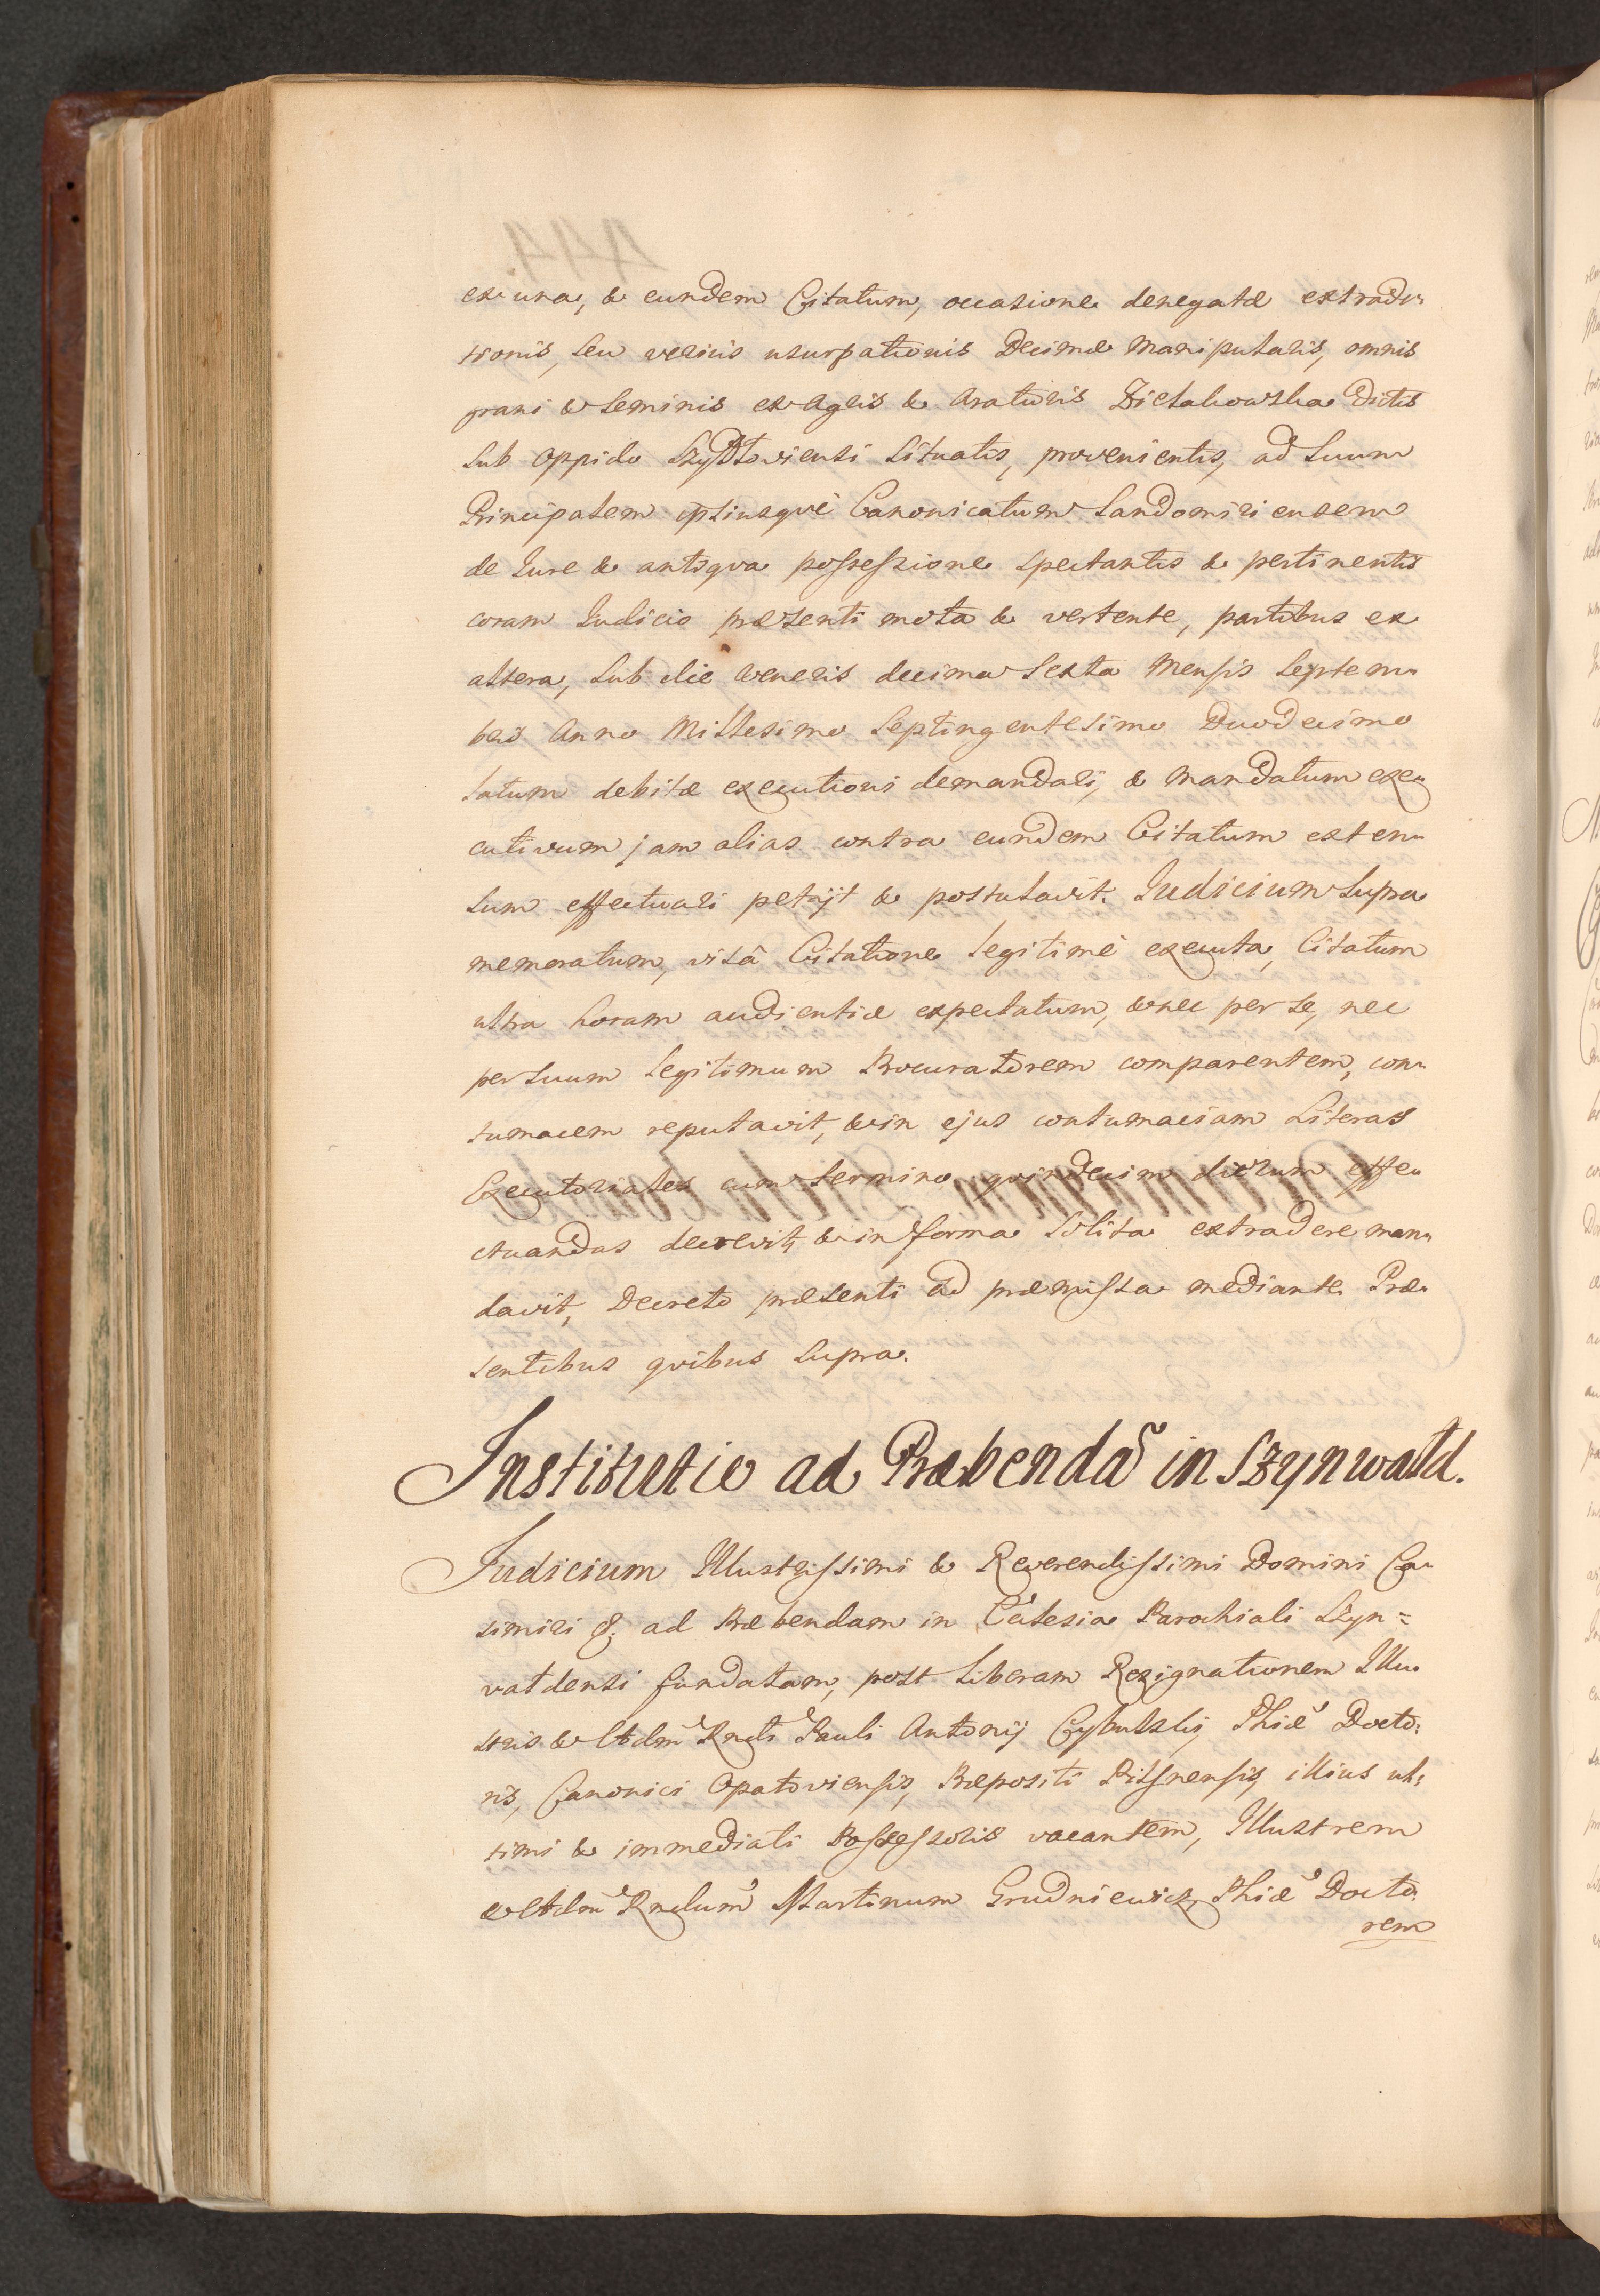 ex una, & eundem Citatum, occasione denegatæ extradi-
tionis, seu verius usurpationis Decimæ Manipularis, omnis
grani & seminis ex Agris & Araturis Dictakowska dictis
sub oppido Szydłoviensi situatis, provenientis, ad suum
Principalem ipsiusque Canonicatum Sandomiriensem
de Iure & antiqua possessione spectantis & pertinentis
coram Iudicio præsenti mota & vertente, partibus ex
altera, sub die Veneris decima sexta Mensis Septem-
bris Anno Millesimo Septingentesimo Duodecimo
latum debitæ executioni demandari, & Mandatum exe-
cutivum jam alias contra eundem Citatum exten-
sum effectuari petijt & postulavit. Iudicium supra
memoratum, visâ Citatione legitimè executa, Citatum
ultra horam audientiæ expectatum, & nec per se, nec
per suum legitimum Procuratorem comparentem, con-
tumacem reputavit, & in ejus contumaciam Literas
Executoriales cum termino quindecim dierum effe-
ctuandas decrevit, & in forma solita extradere man-
davit, Decreto præsenti ad præmissa mediante. Præ-
sentibus quibus supra.
Institutio ad Præbendã in Szynwald.
Iudicium Illustrissimi & Reverendissimi Domini Ca-
simiri &. ad Præbendam in Ecclesia Parochiali Szyn=
valdensi fundatam, post liberam Resignationem Illu-
stris & Adm Rndi Pauli Antonij Cybulskij Phiæ Docto-
ris, Canonici Opatoviensis, Præpositi Pilsnensis, illius ul-
timi & immediati Possessoris vacantem, Illustrem
& Adm Rndum Martinum Grudniewicz, Phiæ Docto
rem